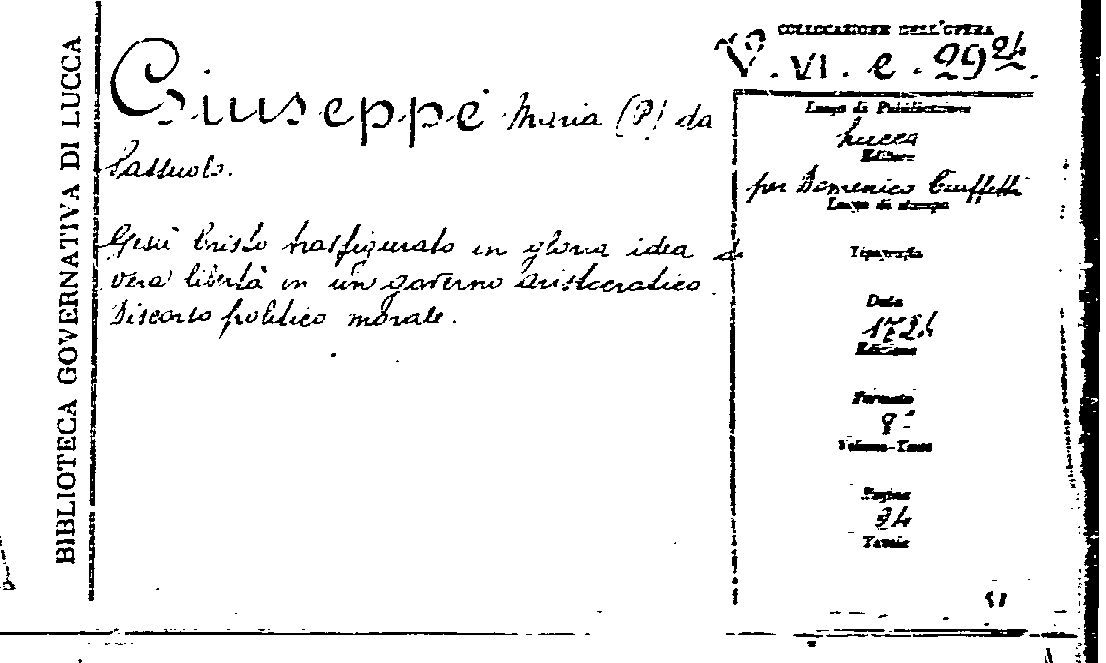 BIBLIOTECA GOVERNATIVA DI LUCCA
Giuseppe Maria (P) da
Sassuolo.
Gesù Cristo trasfigurato in gloria idea di
vera libertà in un governo aristocratico.
Discorso politico morale.
COLLOCAZIONE DELL'OPERA
VI. e. 29
Luogo di Pubblicazione
Lucca
Editore
per Domenico Ciuffetti
Luogo di stampa
Tipografia
Data
Edizione
Formato
8°
Volume-Tomo
Pagine
Tavole